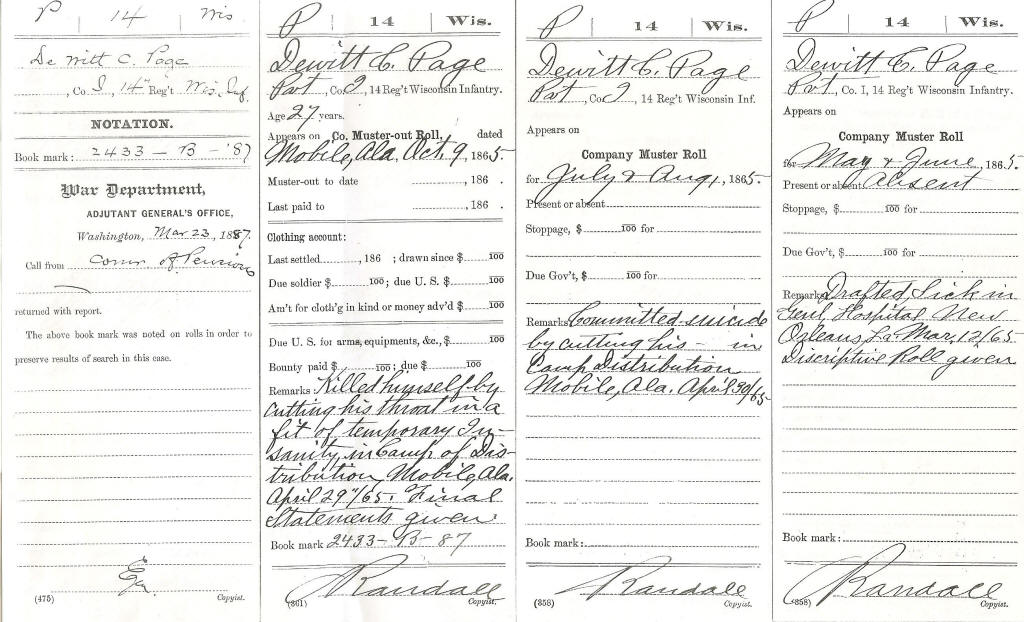 P | 14 | Wis
De Witt C. Page
, Co. I, 14" Reg't Wis. Inf.
NOTATION.
Book mark: 2433 — B — '87
War Department,
ADJUTANT GENERAL'S OFFICE,
Washington, Mar 23, 1887.
Call from Comr. of Pensions
returned with report.
The above book mark was noted on rolls in order to
preserve results of search in this case.
(475)
Copyist.
P | 14 | Wis.
Dewitt C. Page
Pvt, Co. I, 14 Reg't Wisconsin Infantry.
Age 27 years.
Appears on Co. Muster-out Roll, dated
Mobile, Ala, Oct. 9, 1865.
Muster-out to date , 186 .
Last paid to , 186 .
Clothing account:
Last settled , 186 ; drawn since $ 100
Due soldier $ 100; due U. S. $ 100
Am't for cloth'g in kind or money adv'd $ 100
Due U. S. for arms, equipments, &c., $ 100
Bounty paid $ 100; due $ 100
Remarks: Killed himself by
cutting his throat in a
fit of temporary In-
sanity, in Camp of Dis-
tribution, Mobile, Ala.
April 29"/65. Final
Statements given.
Book mark 2433 - B - 87
Randall
(361) Copyist.
P | 14 | Wis.
Dewitt C. Page
Pvt, Co. I, 14 Reg't Wisconsin Inf.
Appears on
Company Muster Roll
for July & Aug, 1865.
Present or absent
Stoppage, $ 100 for
Due Gov't, $ 100 for
Remarks: Committed suicide
by cutting his — in
Camp Distribution
Mobile, Ala. April 30/65
Book mark:
Randall
(358) Copyist.
P | 14 | Wis.
Dewitt C. Page
Pvt., Co. I, 14 Reg't Wisconsin Infantry.
Appears on
Company Muster Roll
for May & June, 1865.
Present or absent Absent
Stoppage, $ 100 for
Due Gov't, $ 100 for
Remarks: Drafted, Sick in
Genl. Hospital New
Orleans, La. Mar, 12/65
Discriptive Roll given
Book mark:
Randall
(358) Copyist.